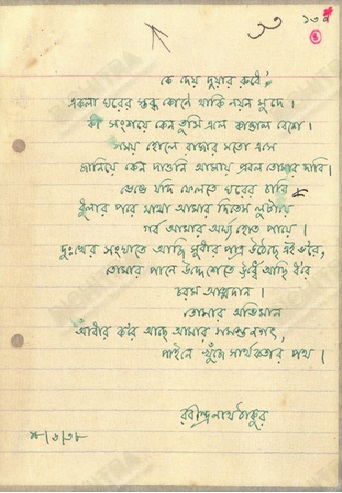 কে দেয় দুয়ার রুধে,
একলা ঘরের স্তব্ধ কোণে থাকি নয়ন মুদে।
কী সংশয়ে কেন তুমি এলে কাঙাল বেশে।
সময় হোলে রাজার মতো এসে
জানিয়ে কেন দাওনি আমায় প্রবল তোমার দাবি।
ভেঙে যদি ফেলতে ঘরের চাবি
ধুলার পরে মাথা আমার দিতেম লুটায়ে
গর্ব আমার অর্ঘ্য হোত পায়ে।
দুঃখের সংঘাতে আজি সুধার পাত্র উঠেছে এই ভ'রে,
তোমার পানে উদ্দেশেতে ঊর্ধ্বে আছি ধ'রে
চরম আত্মদান।
তোমার অভিমান
আঁধার ক'রে আছে আমার সমস্ত জগৎ,
পাইনে খুঁজে সার্থকতার পথ।
রবীন্দ্রনাথ ঠাকুর